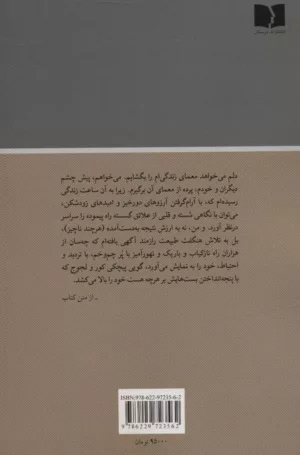 دلم می‌خواهد معمای زندگی‌ام را بگشایم. می‌خواهم، پیش چشم
دیگران و خودم، پرده از معمای آن برگیرم. زیرا به آن ساعت زندگی
رسیده‌ام که، با آرام‌گرفتن آرزوهای دورخیز و امیدهای زودشکن،
می‌توان با نگاهی شسته و قلبی از علائق گسسته راه پیموده را سراسر
درنظر آورد. و من، نه به ارزش نتیجه به‌دست‌آمده (هرچند ناچیز)،
بل به تلاش هنگفت طبیعت رازمند آگهی یافته‌ام که چه‌سان از
هزاران راه نازکتاب و باریک و تهورآمیز یا پر چم‌وخم، با تردید و
احتیاط، خود را به نمایش می‌آورد، گویی پیچکی کور و لجوج که
با پنجه‌انداختن بست‌هایش بر هرچه هست خود را بالا می‌کشد.
ـ از متن کتاب
ISBN: 978-622-97235-6-2
9 786229 723562
۹۵۰۰۰ تومان